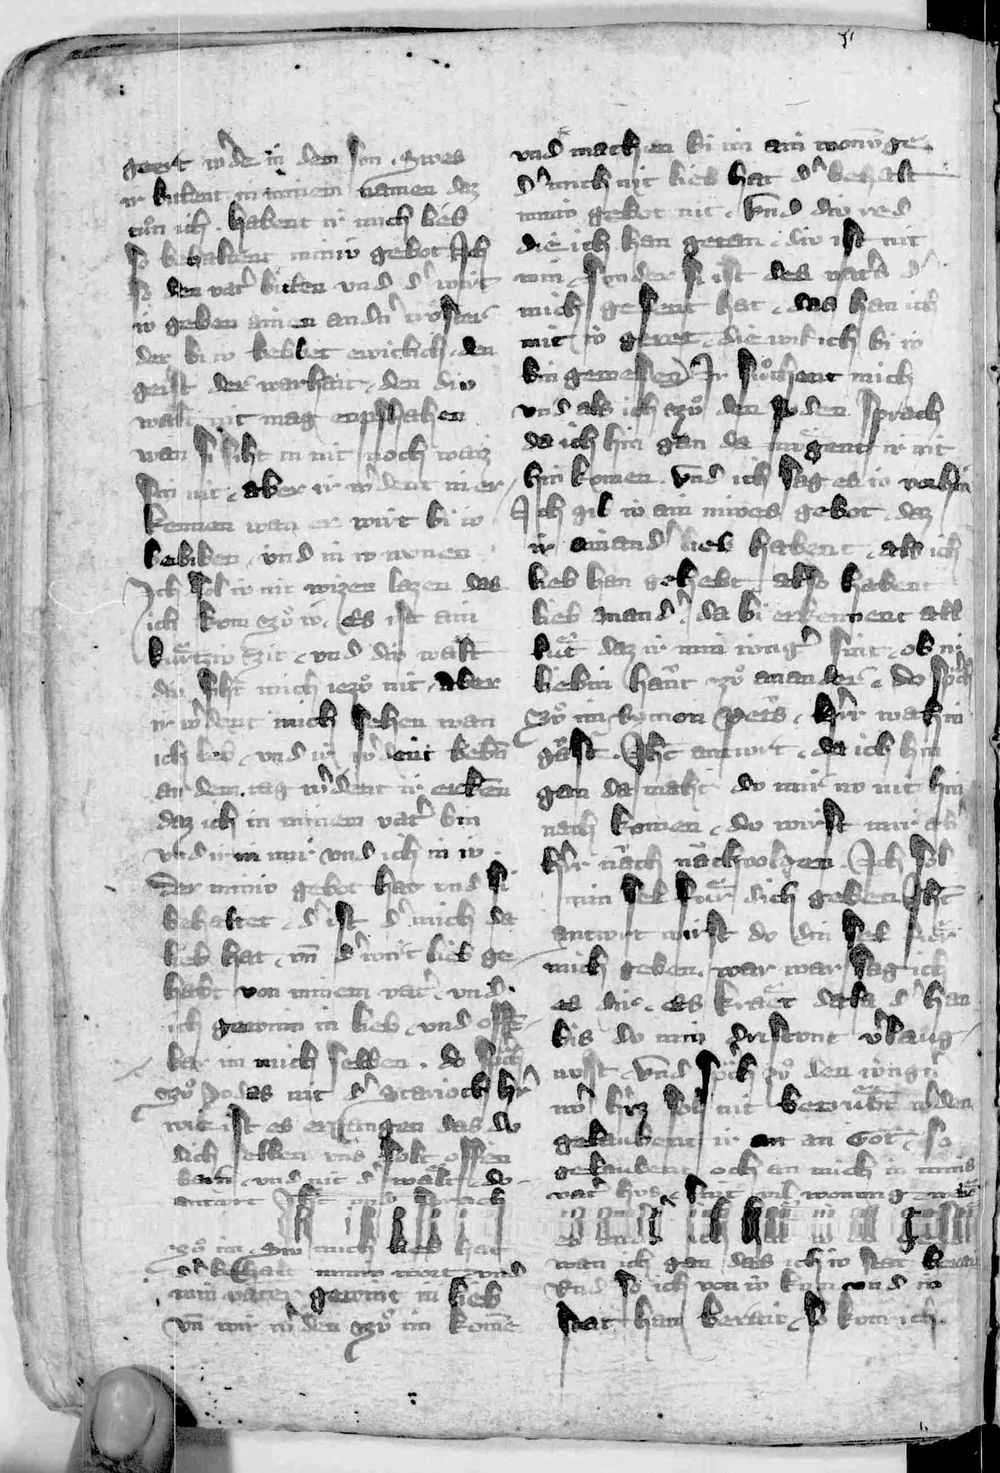 geert wͬde in dem son. Swes
ir bittent in minem namen daz
tuͦn ich. habent ir mich lieb
so behaltent miniv gebot Ich
so den vatͬ bitten vnd dͬ wirt
iv geben ainen andͬn troͤster
der bi iv belibet ewichlich. den
geist der warhait. den div
walt nit mag enpfahen
wan si siht in nit noch waiz
sin nit. aber ir wͬdent in er
kennen wan er wirt bi iv
beliben. vnd in iv wonen
Ich sol iv nit wizen lazen das
ich kom zuͦ iv. es ist ain
kurtziv zit. vnd div walt
div siht mich iezuͦ nit. aber
ir wͬdent mich sehen wan
ich leb. vnd ir wͬdent lebn̄
an dem tag wͬdent ir erken̄
daz ich in minem vatͬ bin
vnd ir in mir vnd ich in iv.
Der miniv gebot hat vnd si
behaltet. dͬ ist dͬ mich da
lieb hat. vn̄ dͬ wirt lieb ge
habt von minem vatͬ. vnd.
ich gewinn in lieb. vnd offē
bar im mich selben. do spͬch
zuͦ Iudas nit dͬ Scarioth hͬr
wie ist es ergangen das du
dich selben vns solt offen
barn̄. vnd nit dͬ walt. do
antwrt Iht̄ vnd sprach
zuͦ im. Swͬ mich lieb hat
dͬ behalt miniv wort vnd
min vater gewint in lieb
vn̄ wir wͬden zuͦ im kom̄e
vnd machen bi im ain wonvnge.
dͬ mich nit lieb hat dͬ behalt
miniv gebot nit. Vnd div red
die ich han getan. div ist nit
min. sunder si ist des vatͬs dͬ
mich gesent hat. das han ich
mit iv geret. die wil ich bi iv
bin gewesen Ir suͦchent mich
vnd als ich zuͦ den Iuden sprach
da ich hin gan da mugent ir nit
hin komen. vnd ich sag es iv
Ich gib iv ain niwes gebot. daz
ir ainandͬ lieb habent. als ich
lieb han gehebt also habent
lieb anandͬ. da bi erkennent all
luͤt daz ir min iungͬ sint. ob ir
liebin hant zuͦ anander. do spͬch
zuͦ im Symon Petͬs. hͬr wa hin
gast. Iht̄ antwrt. da ich hin
gan da maht du mir nv nit hin
nach komen. du wirst mir abͬ
hͬr nach nachvolgen. Ich sol
min sel fuͤr dich geben Iht̄
antwrt wirst du din sel fuͤr
mich geben. war war sag ich
es dir. es kraet dͬ han
bis du min dristont vͬlaug
nust. Vnd spͬch zuͦ den iungͬn
iwͬ hͬrz sol nit betruͤbt wͬden
gelaubent ir an Got. so
gelaubent och an mich in mins
vatͬ hus sint vil wonung
wan ich gan das ich iv stat berait
Vnd so ich von iv kum vnd iv
stat han berait. so kom ich.